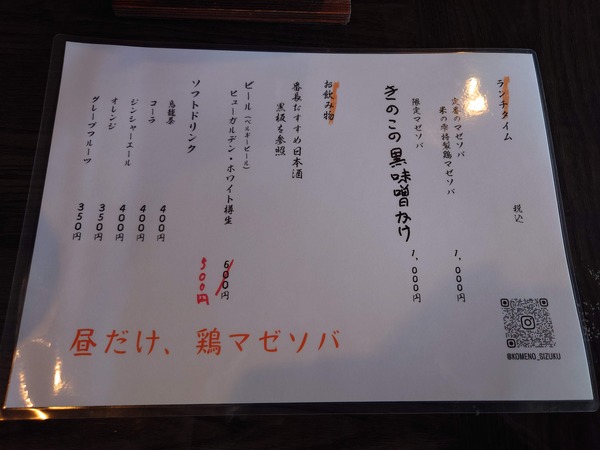 ランチタイム
税込
定番のマゼソバ
米の雫特製鶏マゼソバ 1,000円
限定マゼソバ
きのこの黒味噌かけ 1,000円
お飲み物
番長おすすめ日本酒
黒板を参照
ビール(ベルギービール)
ヒューガルデン・ホワイト樽生 600円
500円
ソフトドリンク
烏龍茶 400円
コーラ 400円
ジンジャーエール 400円
オレンジ 350円
グレープフルーツ 350円
昼だけ、鶏マゼソバ
@KOMENO_SIZUKU